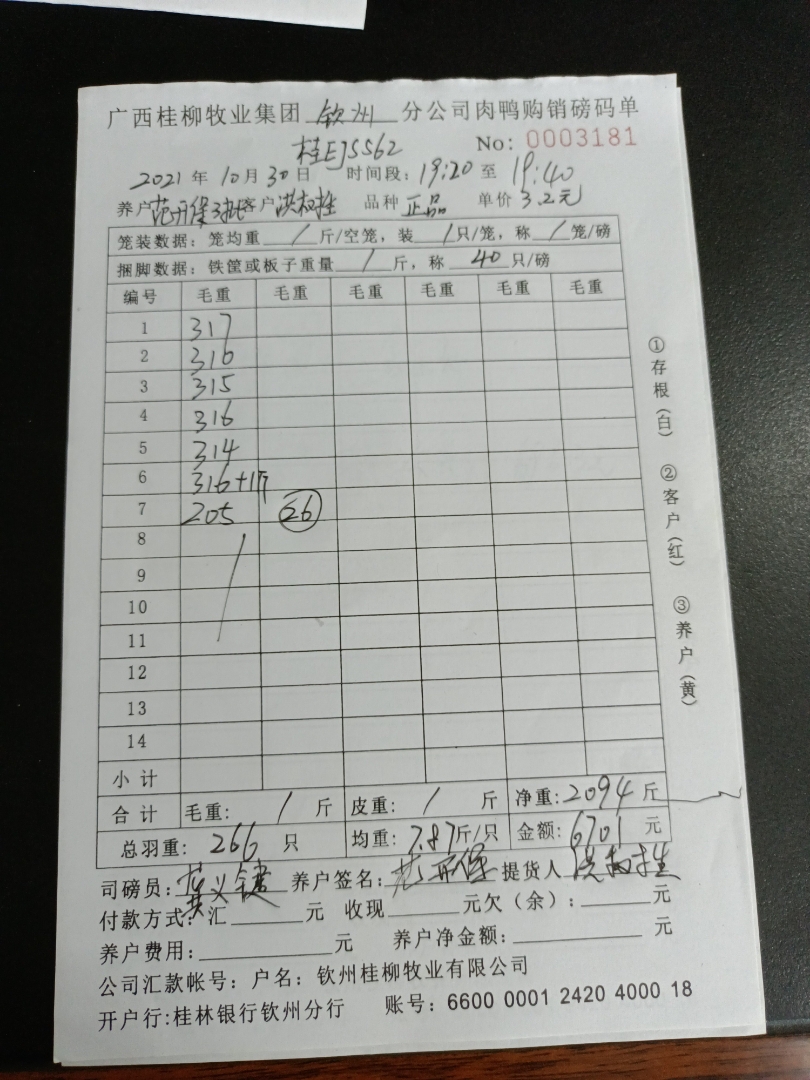 广西桂柳牧业集团 钦州 分公司肉鸭购销磅码单
桂EJ5562 No: 0003181
2021 年 10 月 30 日 时间段: 19:20 至 19:40
养户 范开保3批 客户 洪权拴 品种 正品 单价 3.2元
笼装数据: 笼均重 / 斤/空笼, 装 / 只/笼, 称 / 笼/磅
捆脚数据: 铁筐或板子重量 / 斤, 称 40 只/磅
编号 毛重 毛重 毛重 毛重 毛重 毛重
1 317
2 310
3 315
4 316
5 314
6 316+1斤
7 205 26
8
9
10
11
12
13
14
小计
合计 毛重: / 斤 皮重: / 斤 净重: 2094 斤
总羽重: 266 只 均重: 7.87 斤/只 金额: 6701 元
司磅员: 养户签名: 范开保 提货人
付款方式: 汇 元 收现 元欠(余): 元
养户费用: 元 养户净金额: 元
公司汇款帐号: 户名: 钦州桂柳牧业有限公司
开户行:桂林银行钦州分行 账号: 6600 0001 2420 4000 18
①存根(白) ②客户(红) ③养户(黄)